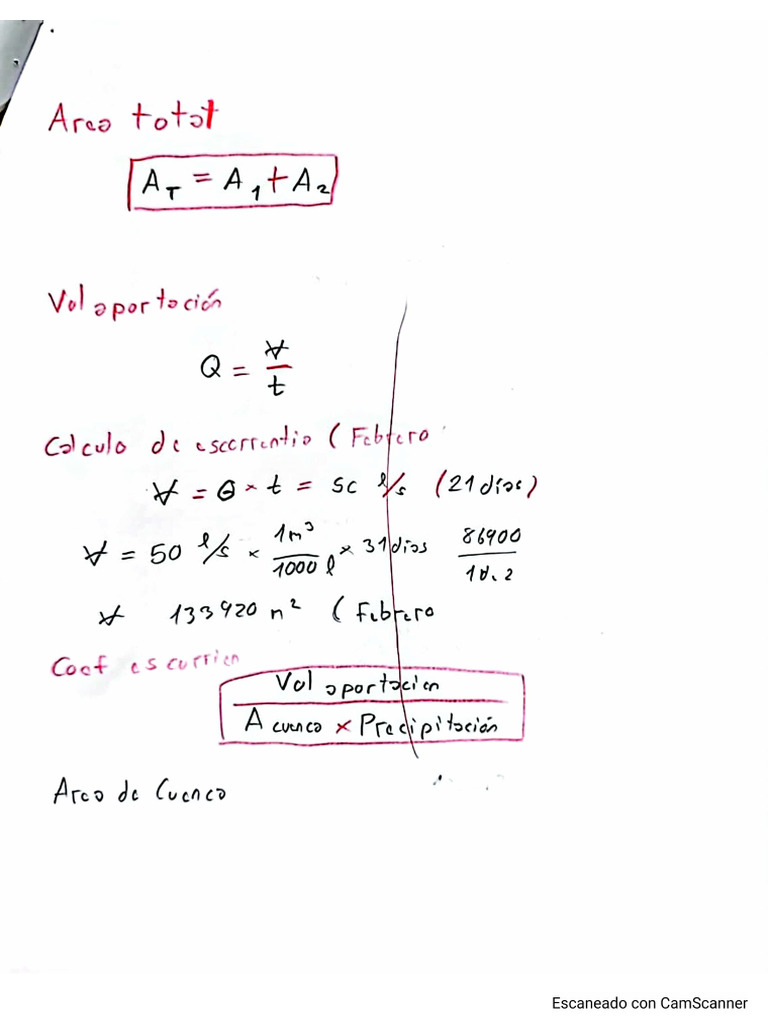 Area total
A_T = A_1 + A_2
Vol aportación
Q = ∀/t
Calculo de escorrentia (Febrero
∀ = Q × t = 50 l/s (21 días)
∀ = 50 l/s × 1m³/1000 l × 31 dias 86900/1d.2
∀ 133920 m² (Febrero
Coef escurrien
Vol aportacion
A cuenca × Precipitación
Area de Cuenca
Escaneado con CamScanner